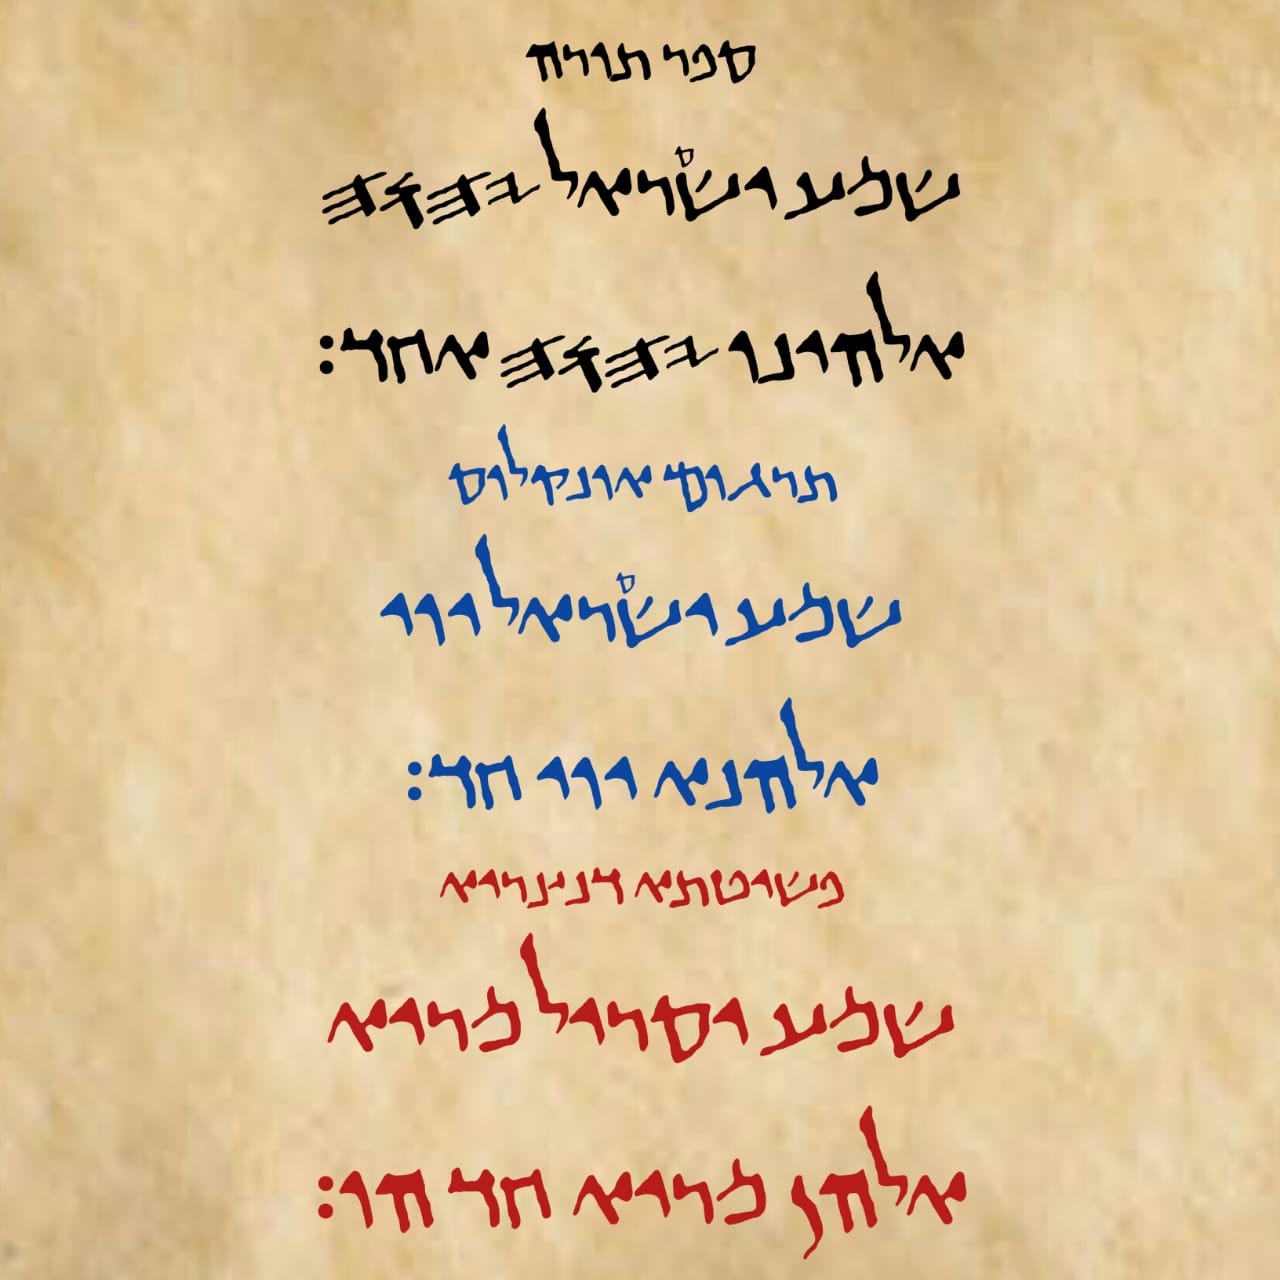 ספר תורה
שמע ישׂראל 𐤉𐤄𐤅𐤄
אלהינו 𐤉𐤄𐤅𐤄 אחד׃
תרגום אונקלוס
שמע ישׂראל יוי
אלהנא יוי חד׃
פשיטתא דנינויא
שמע יסריל מריא
אלהן מריא חד הו׃